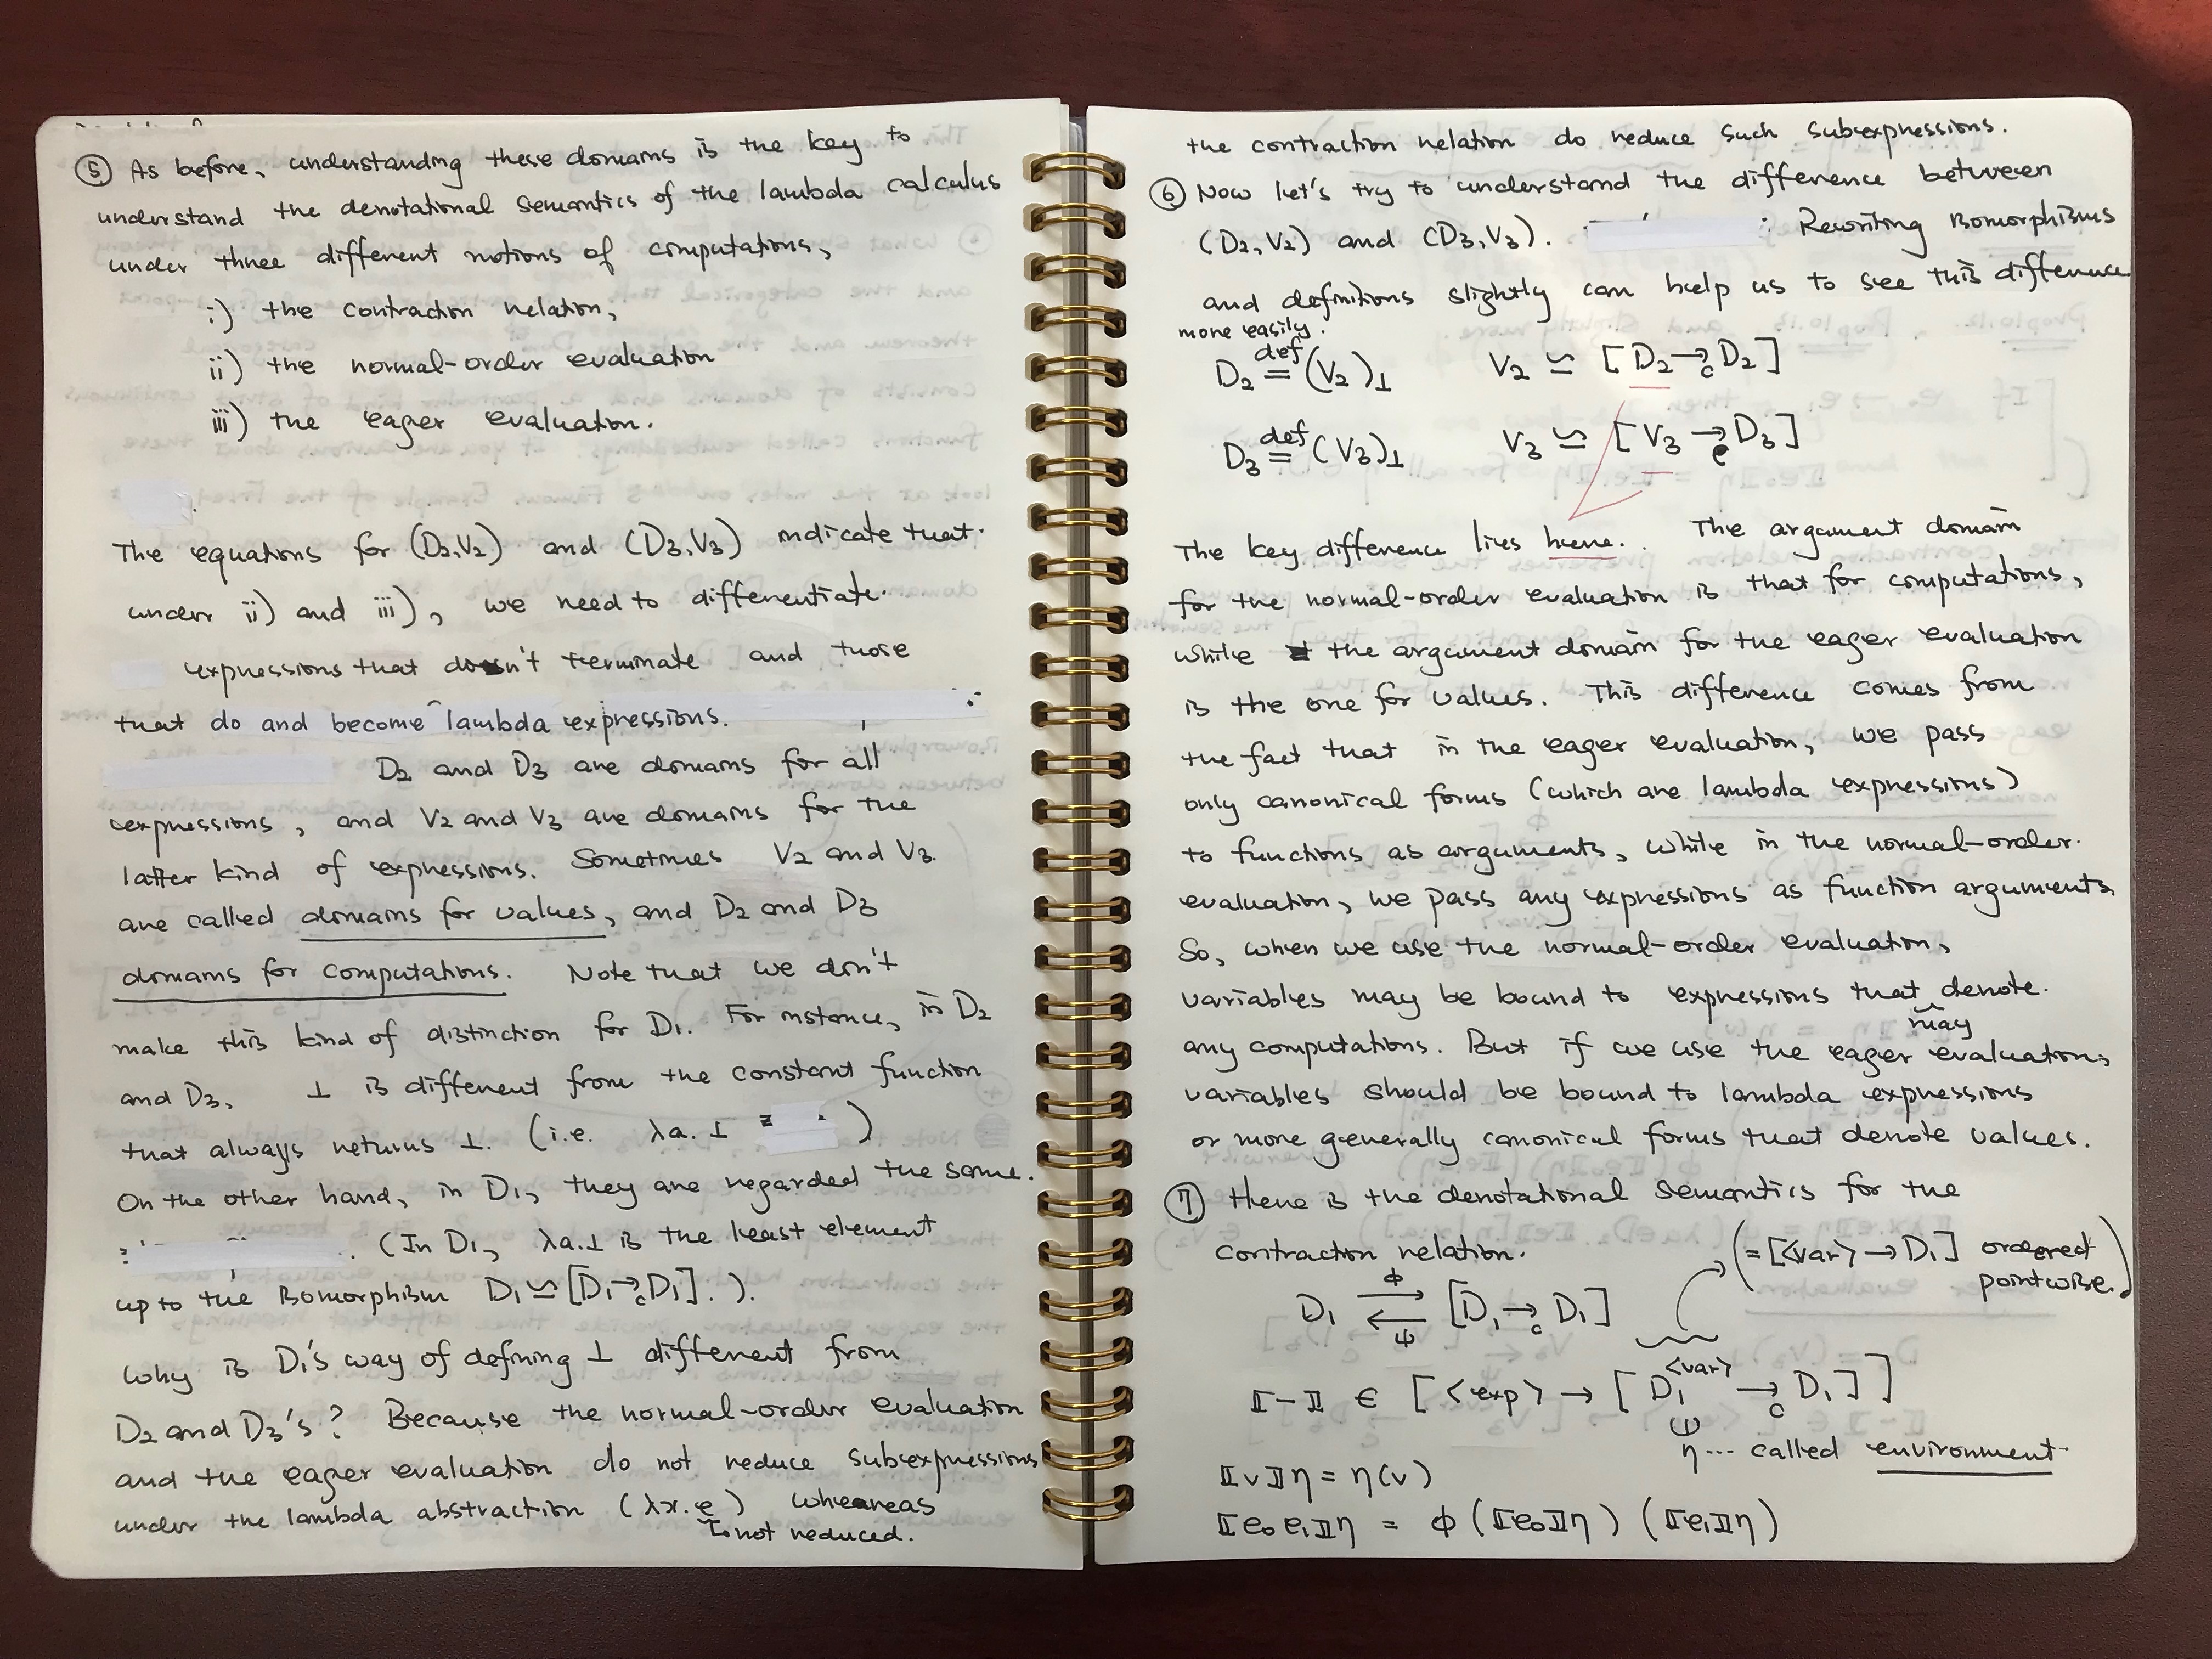 ⑤ As before, understanding these domains is the key to
understand the denotational semantics of the lambda calculus
under three different notions of computations,
i) the contraction relation,
ii) the normal-order evaluation
iii) the eager evaluation.
The equations for (D₂,V₂) and (D₃,V₃) indicate that
under ii) and iii), we need to differentiate
expressions that doesn't terminate and those
that do and become lambda expressions.
D₂ and D₃ are domains for all
expressions, and V₂ and V₃ are domains for the
latter kind of expressions. Sometimes V₂ and V₃
are called domains for values, and D₂ and D₃
domains for computations. Note that we don't
make this kind of distinction for D₁. For instance, in D₂
and D₃, ⊥ is different from the constant function
that always returns ⊥. (i.e. λa.⊥ )
On the other hand, in D₁, they are regarded the same.
(In D₁, λa.⊥ is the least element
up to the isomorphism D₁ ≃ [D₁ →c D₁]. ).
Why is D₁'s way of defining ⊥ different from
D₂ and D₃'s? Because the normal-order evaluation
and the eager evaluation do not reduce subexpressions
under the lambda abstraction (λx.e) whereas
not reduced.
the contraction relation do reduce such subexpressions.
⑥ Now let's try to understand the difference between
(D₂,V₂) and (D₃,V₃). Rewriting isomorphisms
and definitions slightly can help us to see this difference
more easily.
D₂ def= (V₂)⊥ V₂ ≃ [D₂ →c D₂]
D₃ def= (V₃)⊥ V₃ ≃ [V₃ →c D₃]
The key difference lies here. The argument domain
for the normal-order evaluation is that for computations,
while the argument domain for the eager evaluation
is the one for values. This difference comes from
the fact that in the eager evaluation, we pass
only canonical forms (which are lambda expressions)
to functions as arguments, while in the normal-order
evaluation, we pass any expressions as function arguments.
So, when we use the normal-order evaluation,
variables may be bound to expressions that denote
may
any computations. But if we use the eager evaluation,
variables should be bound to lambda expressions
or more generally canonical forms that denote values.
⑦ Here is the denotational semantics for the
contraction relation. (= [<var> → D₁] ordered
pointwise.)
D₁ ⇄ [D₁ →c D₁]
ϕ
ψ
⟦-⟧ ∈ [<exp> → [D₁^<var> →c D₁]]
η ... called environment
⟦v⟧η = η(v)
⟦e₀ e₁⟧η = ϕ(⟦e₀⟧η)(⟦e₁⟧η)